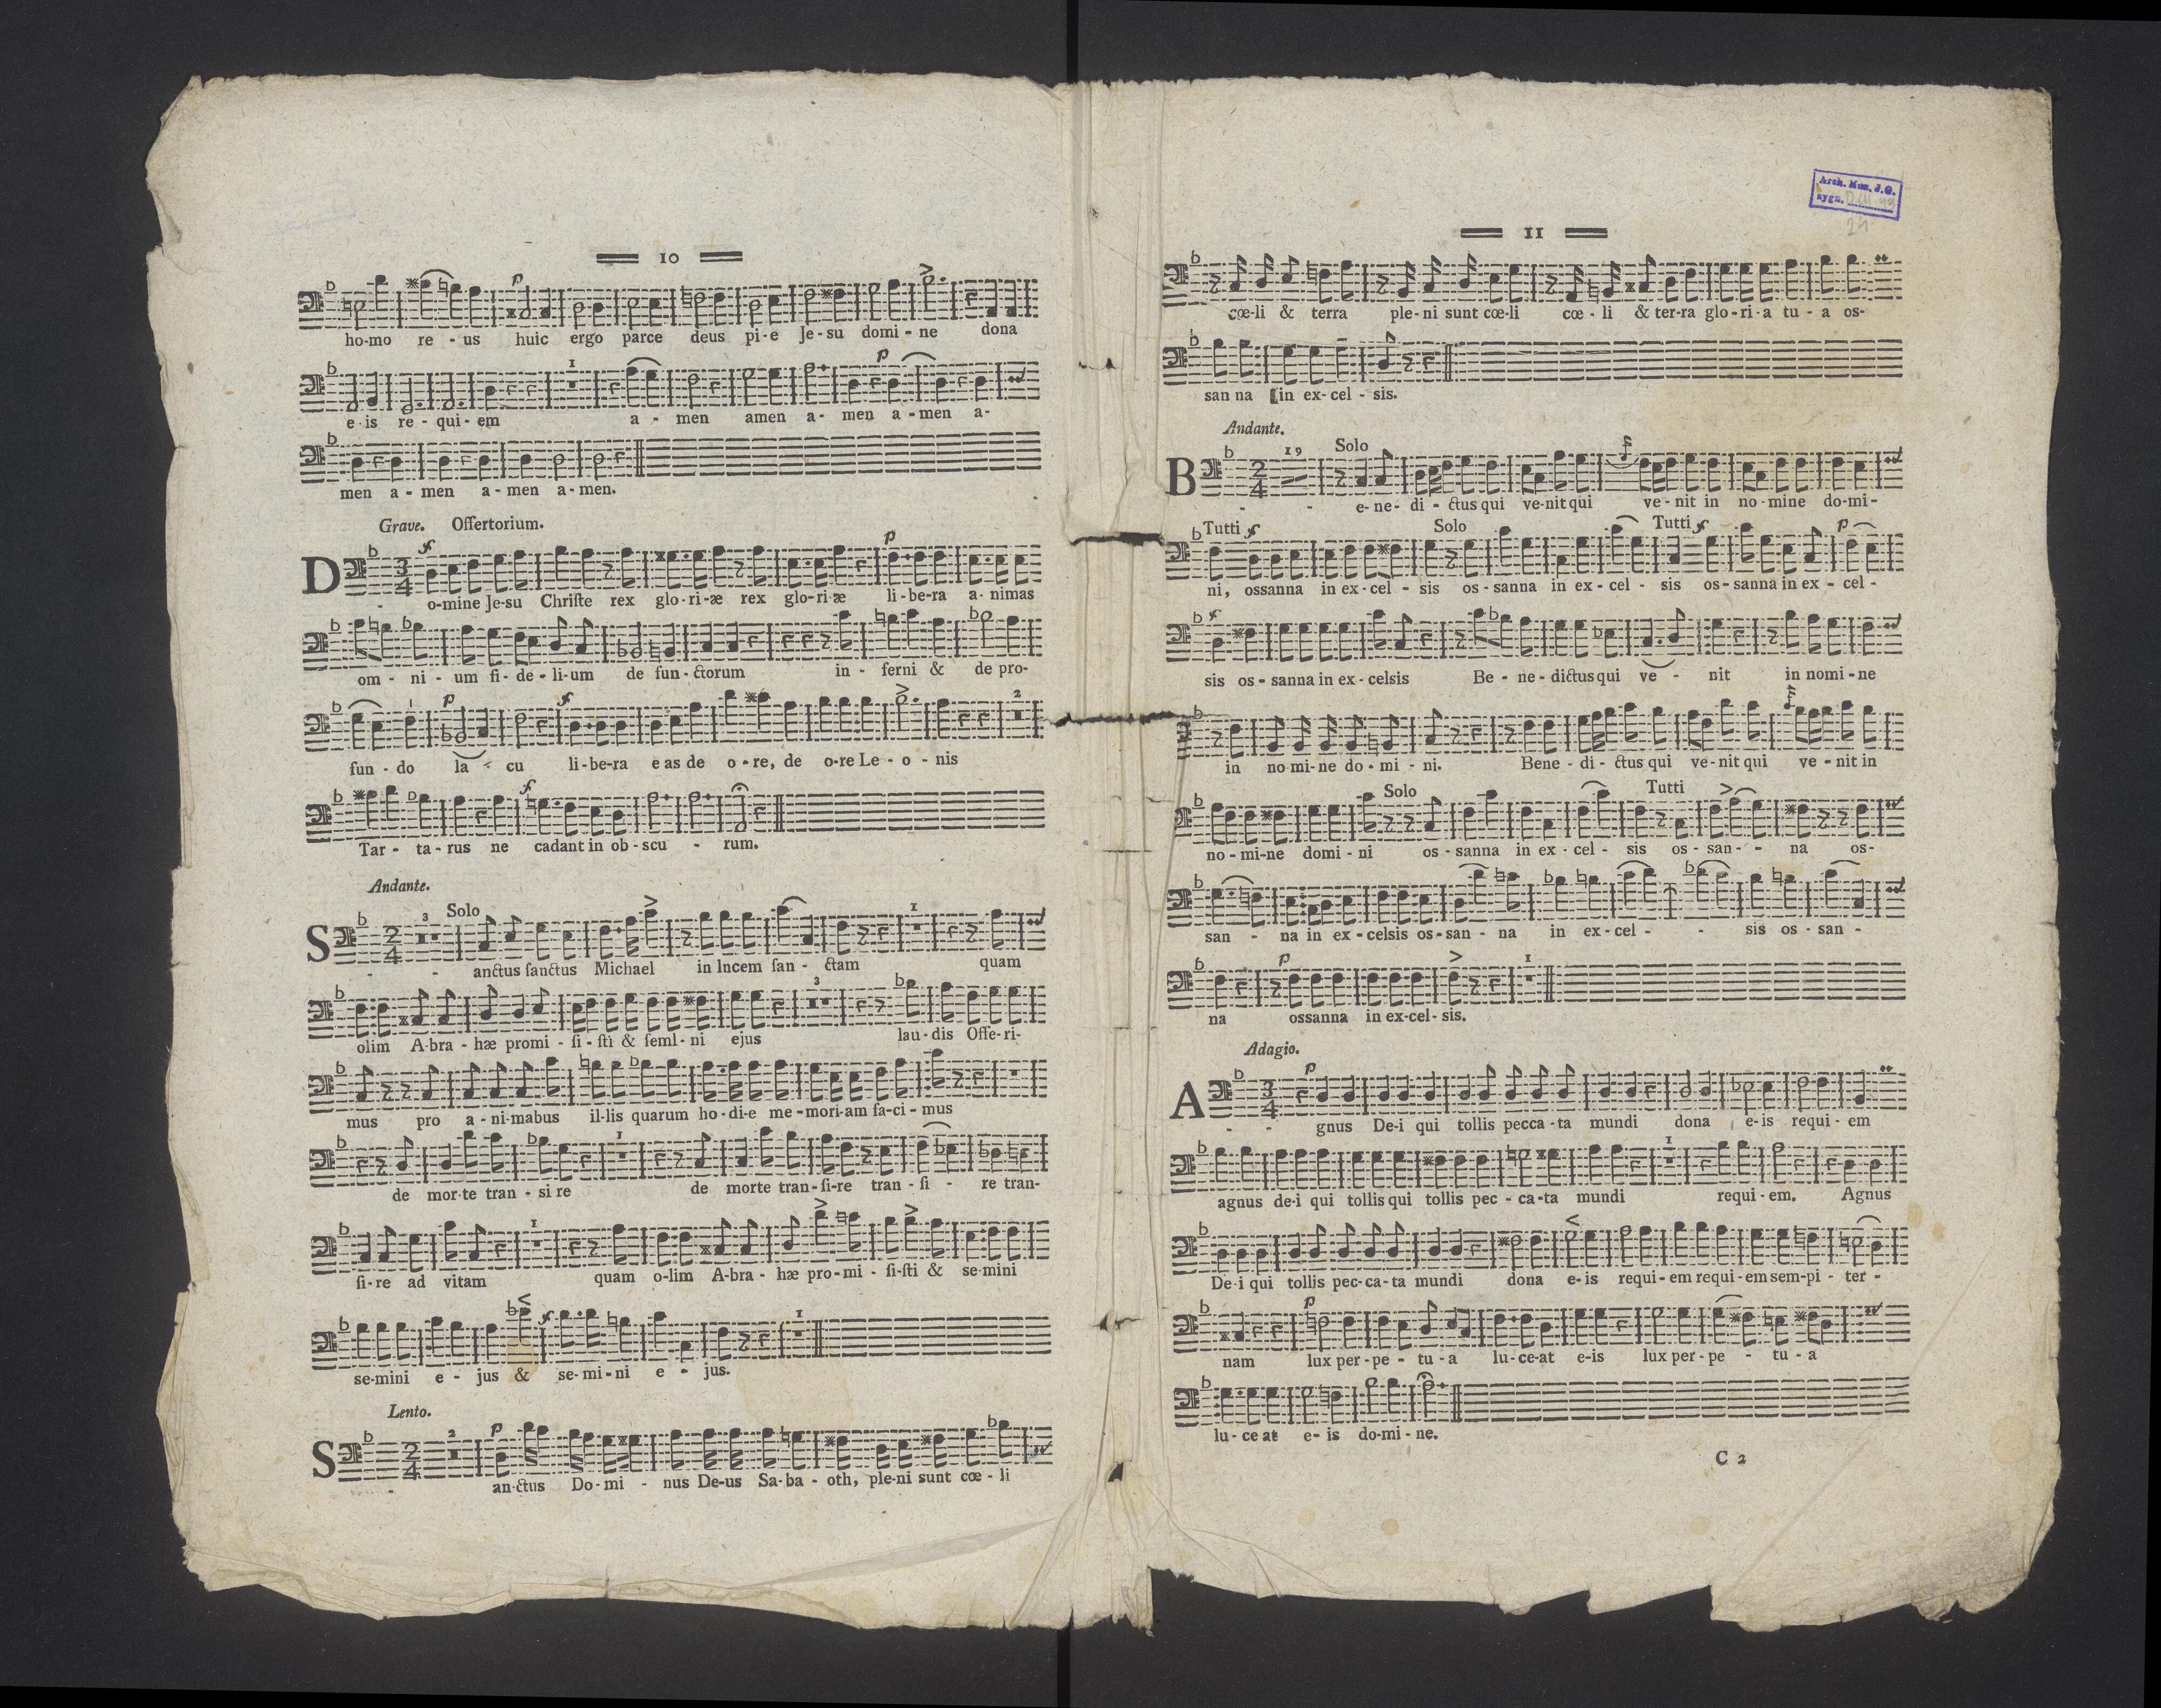 10
ho-mo re - us huic ergo parce deus pi-e Je-su domi-ne dona
e-is re-qui-em a - men amen a-men a-men a-
men a-men a-men a-men.
Grave. Offertorium.
D - o-mine Je-su Chriſte rex glo-ri-æ rex glo-ri-æ li-be-ra a-nimas
om - ni - um fi-de-li-um de fun-ctorum in - ferni & de pro-
fun-do la - cu li-be-ra e as de o-re, de o-re Le-o-nis
Tar - ta-rus ne cadant in ob-scu - rum.
Andante.
Solo
S - - anctus ſanctus Michael in lncem ſan - ctam quam
olim A-bra-hæ promi - ſi-ſti & ſeml-ni ejus lau-dis Offe-ri-
mus pro a-ni-mabus il-lis quarum ho-di-e me-mori-am fa-ci-mus
de mor-te tran-si re de morte tran-ſi-re tran-ſi - re tran-
ſi-re ad vitam quam o-lim A-bra-hæ pro-mi-ſi-ſti & se-mini
se-mini e - jus & se-mi-ni e - jus.
Lento.
S - an-ctus Do-mi - nus De-us Sa-ba-oth, ple-ni sunt cœ-li
11
Arch. Mus. J.G.
sygn.
cœ-li & terra ple-ni sunt cœ-li cœ-li & ter-ra glo-ri-a tu-a os-
san na in ex-cel-sis.
Andante.
Solo
B - - e-ne-di-ctus qui ve-nit qui ve-nit in no-mine do-mi-
Tutti Solo Tutti
ni, ossanna in ex-cel - sis os-sanna in ex-cel - sis os-sanna in ex-cel-
sis os-sanna in ex-celsis Be-ne-dictus qui ve - nit in nomi-ne
in no-mi-ne do-mi-ni. Bene-di-ctus qui ve-nit qui ve-nit in
Solo Tutti
no-mi-ne domi-ni os-sanna in ex-cel - sis os-san - - na os-
san - na in ex-celsis os-san-na in ex-cel - - sis os-san -
na ossanna in ex-cel-sis.
Adagio.
A - - gnus De-i qui tollis pecca-ta mundi dona e-is requi-em
agnus de-i qui tollis qui tollis pec-ca-ta mundi requi-em. Agnus
De-i qui tollis pec-ca-ta mundi dona e-is requi-em requi-em sem-pi-ter-
nam lux per-pe-tu-a lu-ce-at e-is lux per-pe - tu-a
lu-ce at e-is do-mi-ne.
C 2